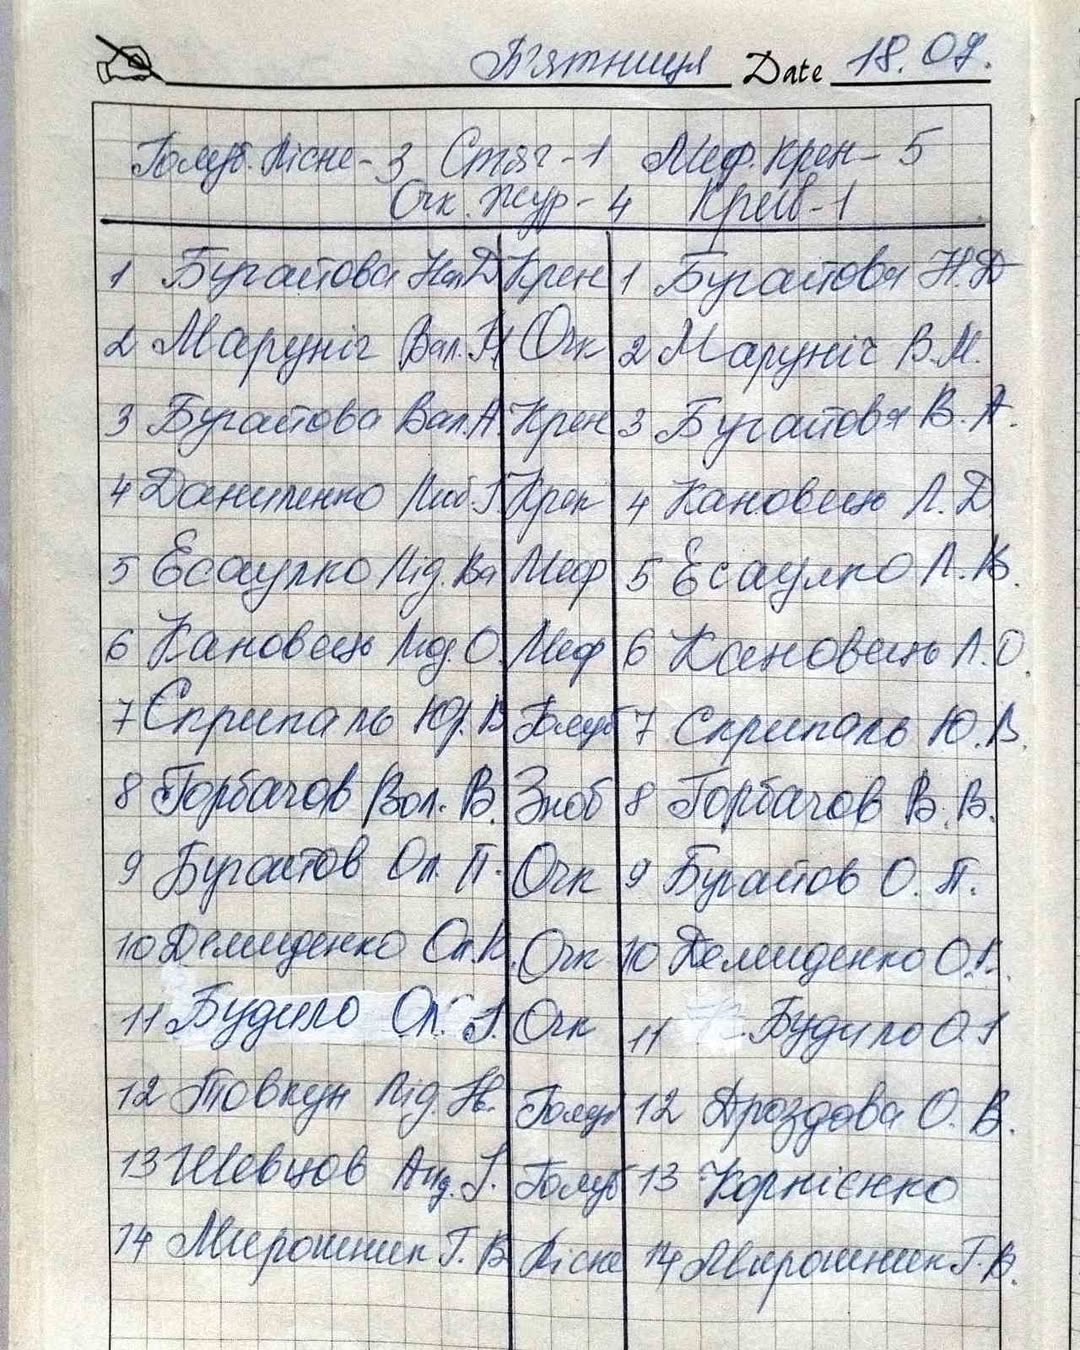 П'ятниця Date 18.07.
Голуб. Лісне - 3 Стяг - 1 Меф. Крен - 5
Очк. Жур - 4 Крив - 1
1 Бугайова На.Д Крен 1 Бугайова Н.Д
2 Маруніч Вал. М Очк 2 Маруніч В.М.
3 Бугайова Вал.А. Крен 3 Бугайова В.А.
4 Даниленко Люб. Крен 4 Кановець Л.Д
5 Єсаулко Лід. Ва Меф 5 Єсаулко Л.В.
6 Кановець Люд. О. Меф 6 Кановець Л.О
7 Скрипаль Юр. В Голуб 7 Скрипаль Ю.В.
8 Горбачов Вол. В. Зноб 8 Горбачов В.В.
9 Бугайов Ол. П. Очк 9 Бугайов О.П.
10 Демиденко Ол. Очк 10 Демиденко О.
11 Будило Ол. І. Очк 11 Будило О.І
12 Товкун Лід. Ів. Голуб 12 Дроздова О.В.
13 Шевцов Анд. І. Голуб 13 Корнієнко
14 Мирошник Г.В Лісне 14 Мирошник Г.В.